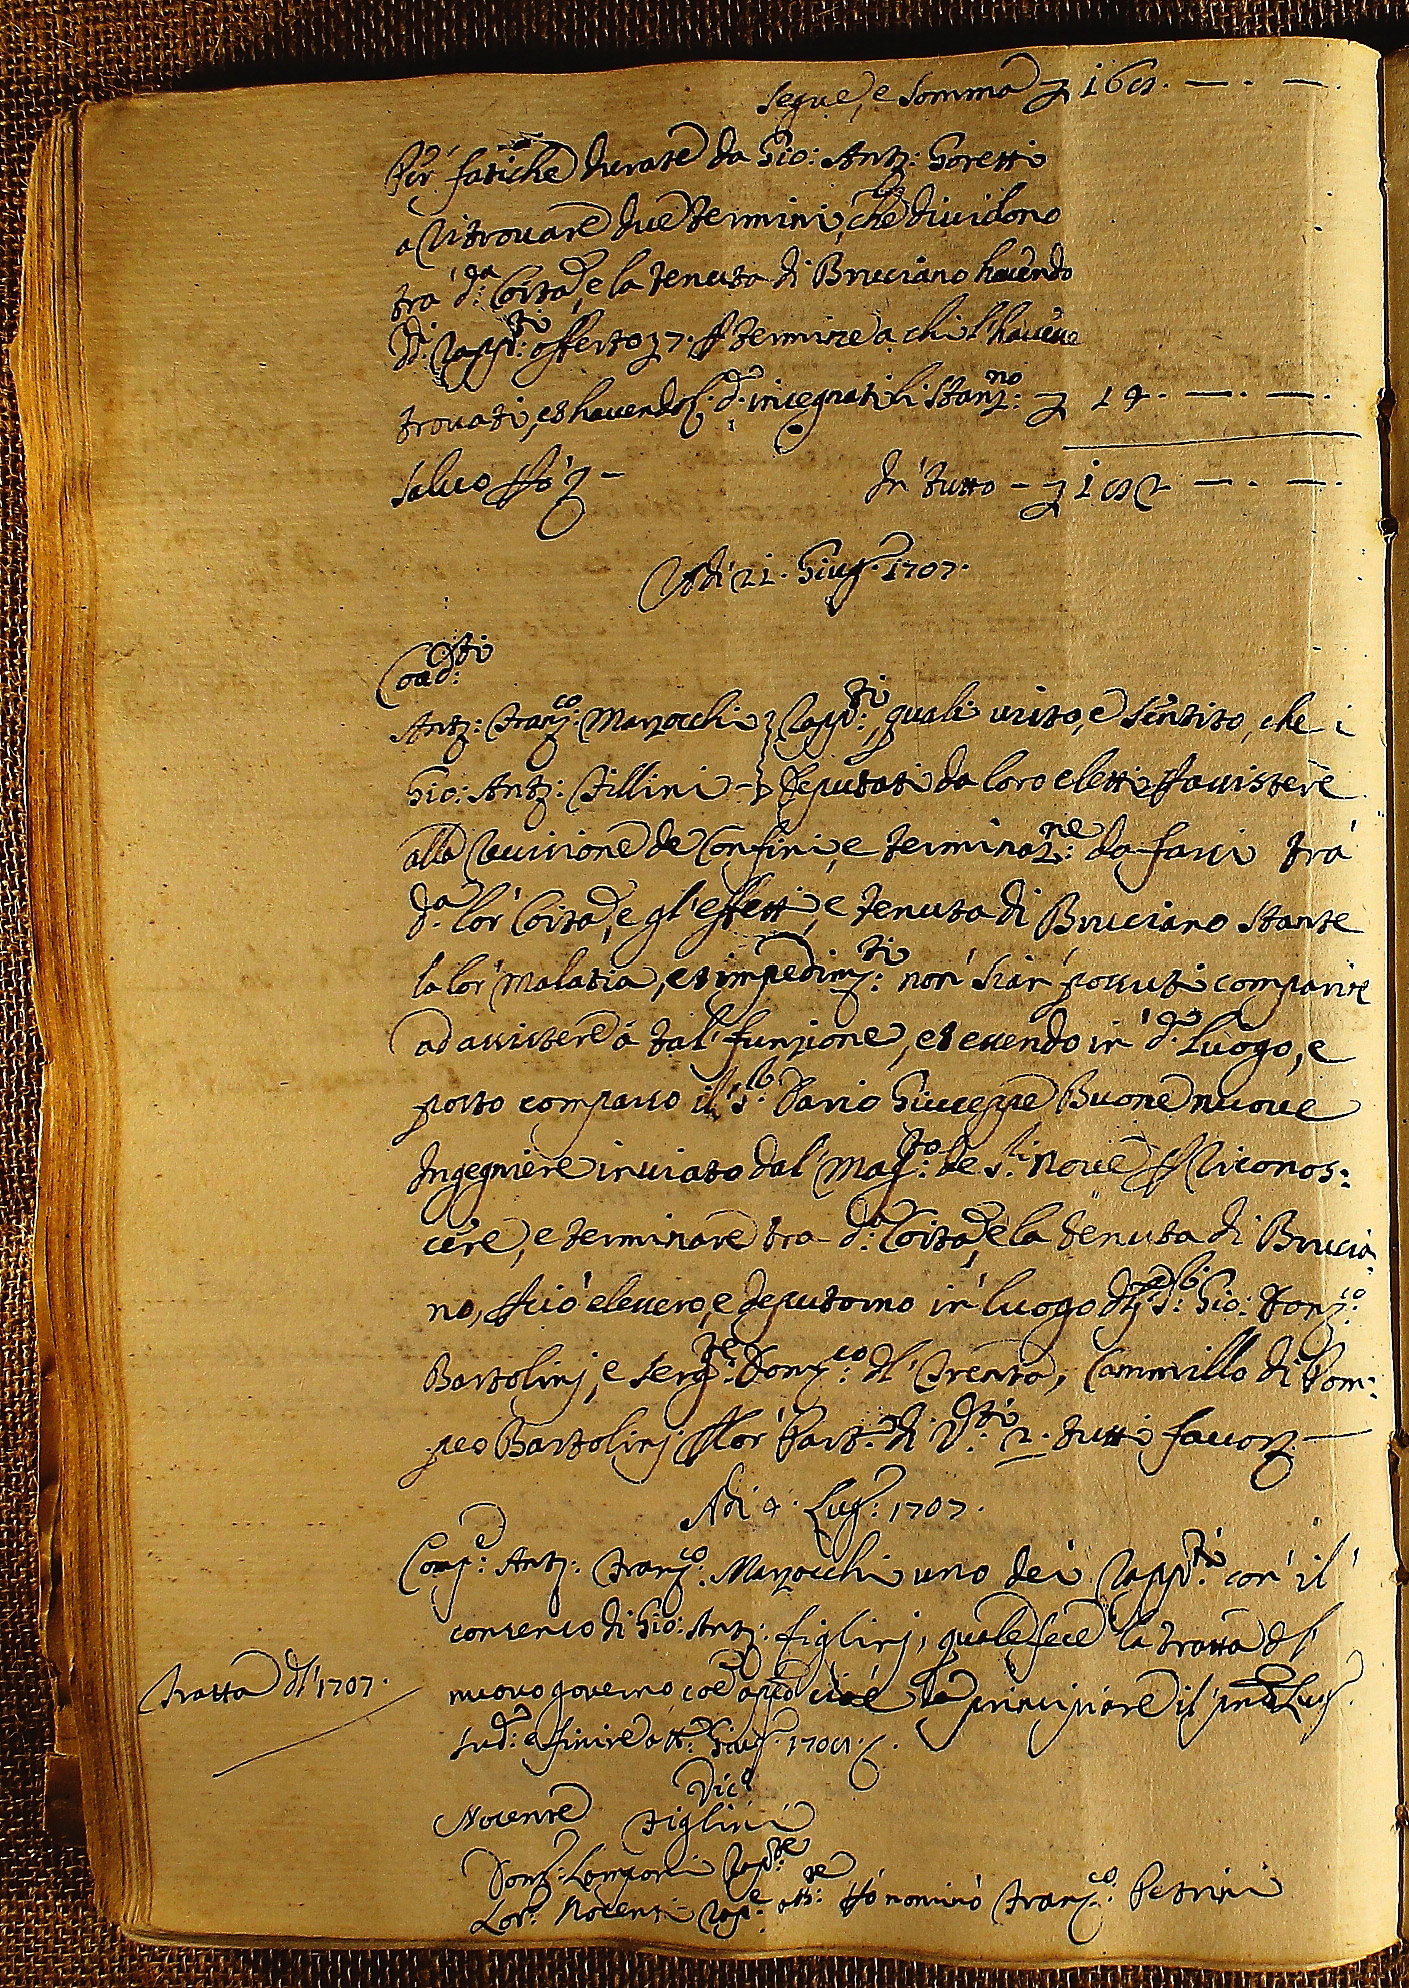 segue, e somma 168. —. —.
Per fatiche durate da Gio: Antº: Goretti
a ritrovare due termini, che dividono
trà d:ᵗᵃ Corte, e la tenuta di Bruciano havendo
d:ⁱ Rapp:ᵗⁱ offerto 7. termine a chi l'havesse
trovati, et havendoli d:º insegnati li stanz:ⁿᵒ 14. —. —.
salvo In tutto — 182 —. —.
Adì 21. Giug:º 1707.
Coad:ᵗⁱ
Antº: Franc:ᶜᵒ Marzocchi Rapp:ᵗⁱ, quali visto, e sentito, che i
Gio: Antº: Fillini — Deputati da loro eletti assistere
alla revisione de Confini, e terminaz:ⁿᵉ da farsi trà
d:ᵃ lor Corte, e gl'effetti, e tenuta di Bruciano stante
la lor malatia, et impedim:ᵗⁱ non sian possuti comparire
ad assistere à tal funzione, et essendo in d:º luogo, e
posto comparso il s:ʳ Dario Giuseppe Buone nuove
Ingegniere inviato dal Mag:ᵗᵒ de s:ʳⁱ Nove riconos:
cere, e terminare tra d:ᵃ Corte, e la tenuta di Brucia
no, ciò elessero, e deputorno in luogo s:ʳⁱ Gio: Dom:ᶜᵒ
Bartolinj, e Serg:ᵗᵉ Dom:ᶜᵒ dl' Trenta, Cammillo di Pom:
peo Bartolinj lor Part:º di V:ᵗⁱ 2. tutti favor: —
Adì 4. Lug:º 1707.
Comp:ᵉ Antº: Franc:ᶜᵒ Marzocchi uno dei Rapp:ᵗⁱ con il
consenso di Gio: Antº: Figlinj, quale fece la tratta dl'
Tratta dl' 1707.
nuovo governo cioè da principiare il Lug:º
sud:º e finire a tt:º Giug:º 1708.
Nocente Vic:º Figlini
Dom:º Lomponi Rap:ᵗᵉ
Lor:º Nocenti Rap:ᵉ nominò Franc:ᶜᵒ Petrini